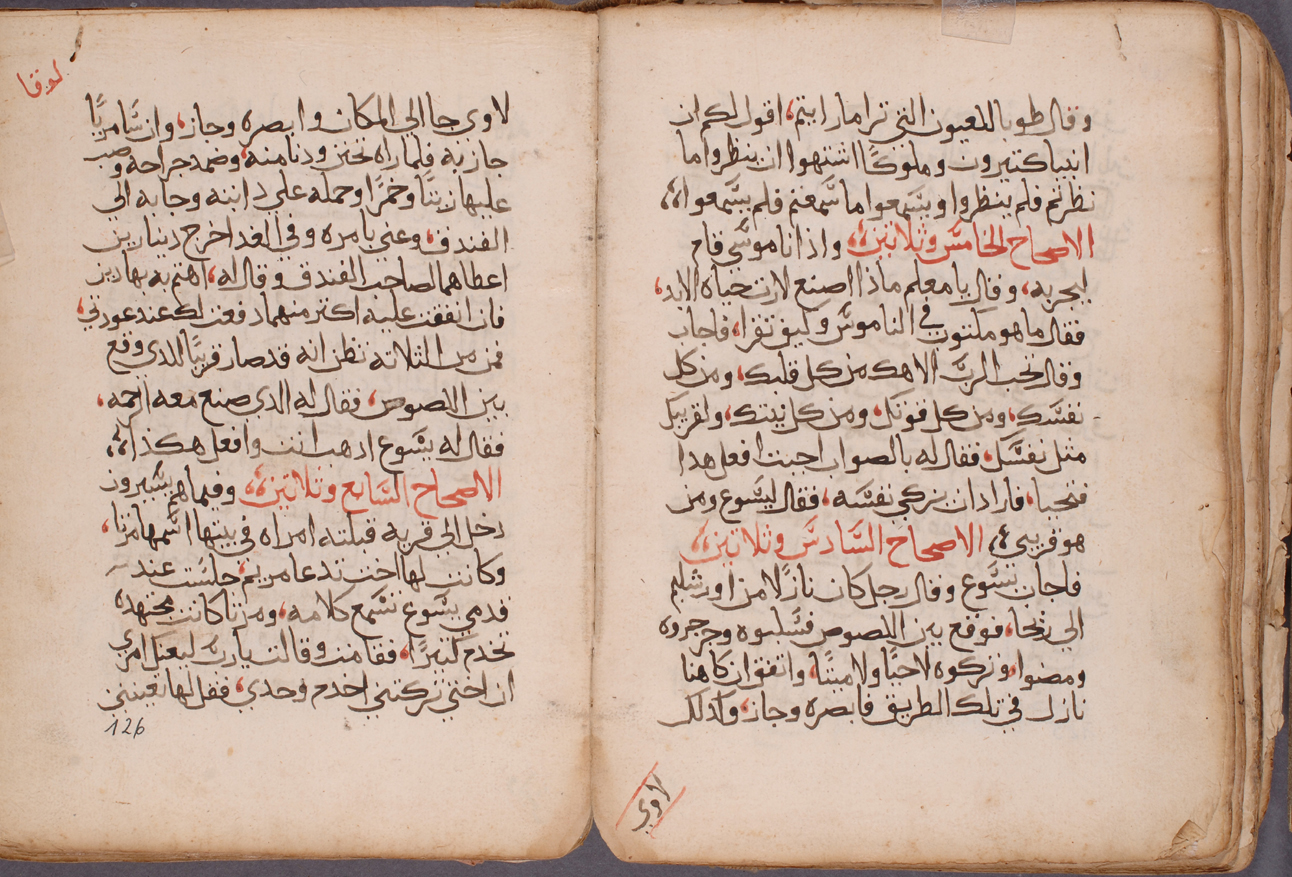 وقال طوبا للعيون التي ترا ما رايتم، اقول لكم ان
انبيا كتيرون وملوكًا اشتهوا ان ينظروا ما
نظرتم فلم ينظروا ويسمعوا ما سمعتم فلم يسمعوا،،
الاصحاح الخامس وثلاتين،، واذا ناموسي قام
ليجربه، وقال يا معلم ماذا اصنع لارت حياه الابد،
فقال ما هو مكتوب في الناموس وكيف تقرا، فاجاب
وقال تحب الرب الاهك من كل قلبك، ومن كل
نفسك، ومن كل قوتك، ومن كل نيتك، ولقريبك
مثل نفسك، فقال له بالصواب اجبت افعل هدا
فتحيا، فاراد ان يزكي نفسه، فقال ليسوع ومن
هو قريبي،، الاصحاح السادس وثلاتين،،
فاجاب يسوع وقال رجل كان نازلا من اورشليم
الى ريحا، فوقع بين اللصوص فسلبوه وجرحوه
ومضوا، وتركوه لا حيًا ولا ميتًا، واتفق ان كاهنا
نازل في تلك الطريق فابصره وجاز، وكدلك
لاوي
لوقا
لاوي جا الي المكان وابصره وجاز، وان سامريًا
جاز به فلما راه تحنن ودنا منه، وضمد جراحه وصب
عليها زيتًا وخمرًا وحمله على دابته وجا به الى
الفندق، وعني بامره وفي الغد اخرج دينارين
اعطاهما لصاحب الفندق وقال له، اهتم به بهادين
فان انفقت عليه اكتر منهما دفعت لك عند عودتي،
فمن من التلاته تظن انه قد صار قريبًا للدي وقع
بين اللصوص، فقال له الدي صنع معه الرحمه،
فقال له يسوع ادهب انت وافعل هكذا،،
الاصحاح السابع وتلاتين،، وفيما هم يسيرون
دخل الى قريه قبلته امراه في بيتها اسمها مرتا،
وكانت لها اخت تدعا مريم، جلست عند
قدمي يسوع تسمع كلامه، ومرتا كانت مجتهده
تخدم كتيرًا، فقامت وقالت يا رب ليعنك امري
ان اختي تركتني اخدم وحدي، فقل لها تعينني
126